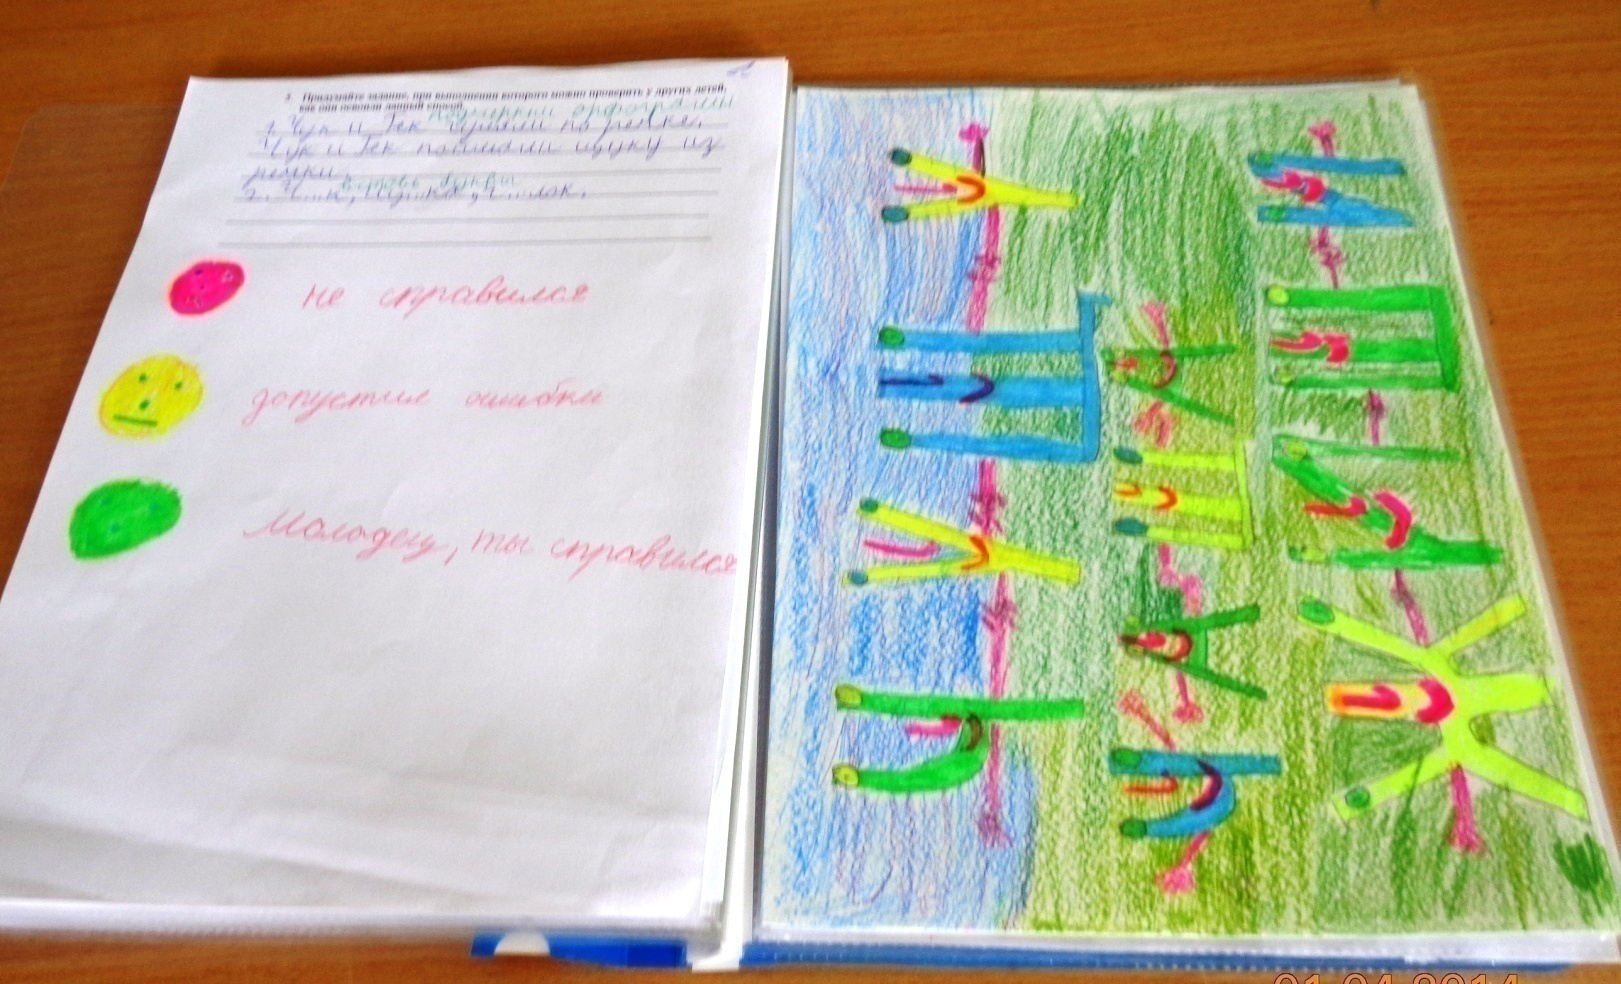 3. Придумайте задание, при выполнении которого можно проверить у других детей,
как они освоили данный способ.
подчеркни орфограммы
1. Чук и Гек гуляли по речке.
Чук и Гек поймали щуку из
речки
вставь буквы
2. Ч...к, щ...ка, ч...лок.
не справился
допустил ошибки
Молодец, ты справился
ЧУЩУ
ЧАЩА
ЖИШИ
01.04.2014